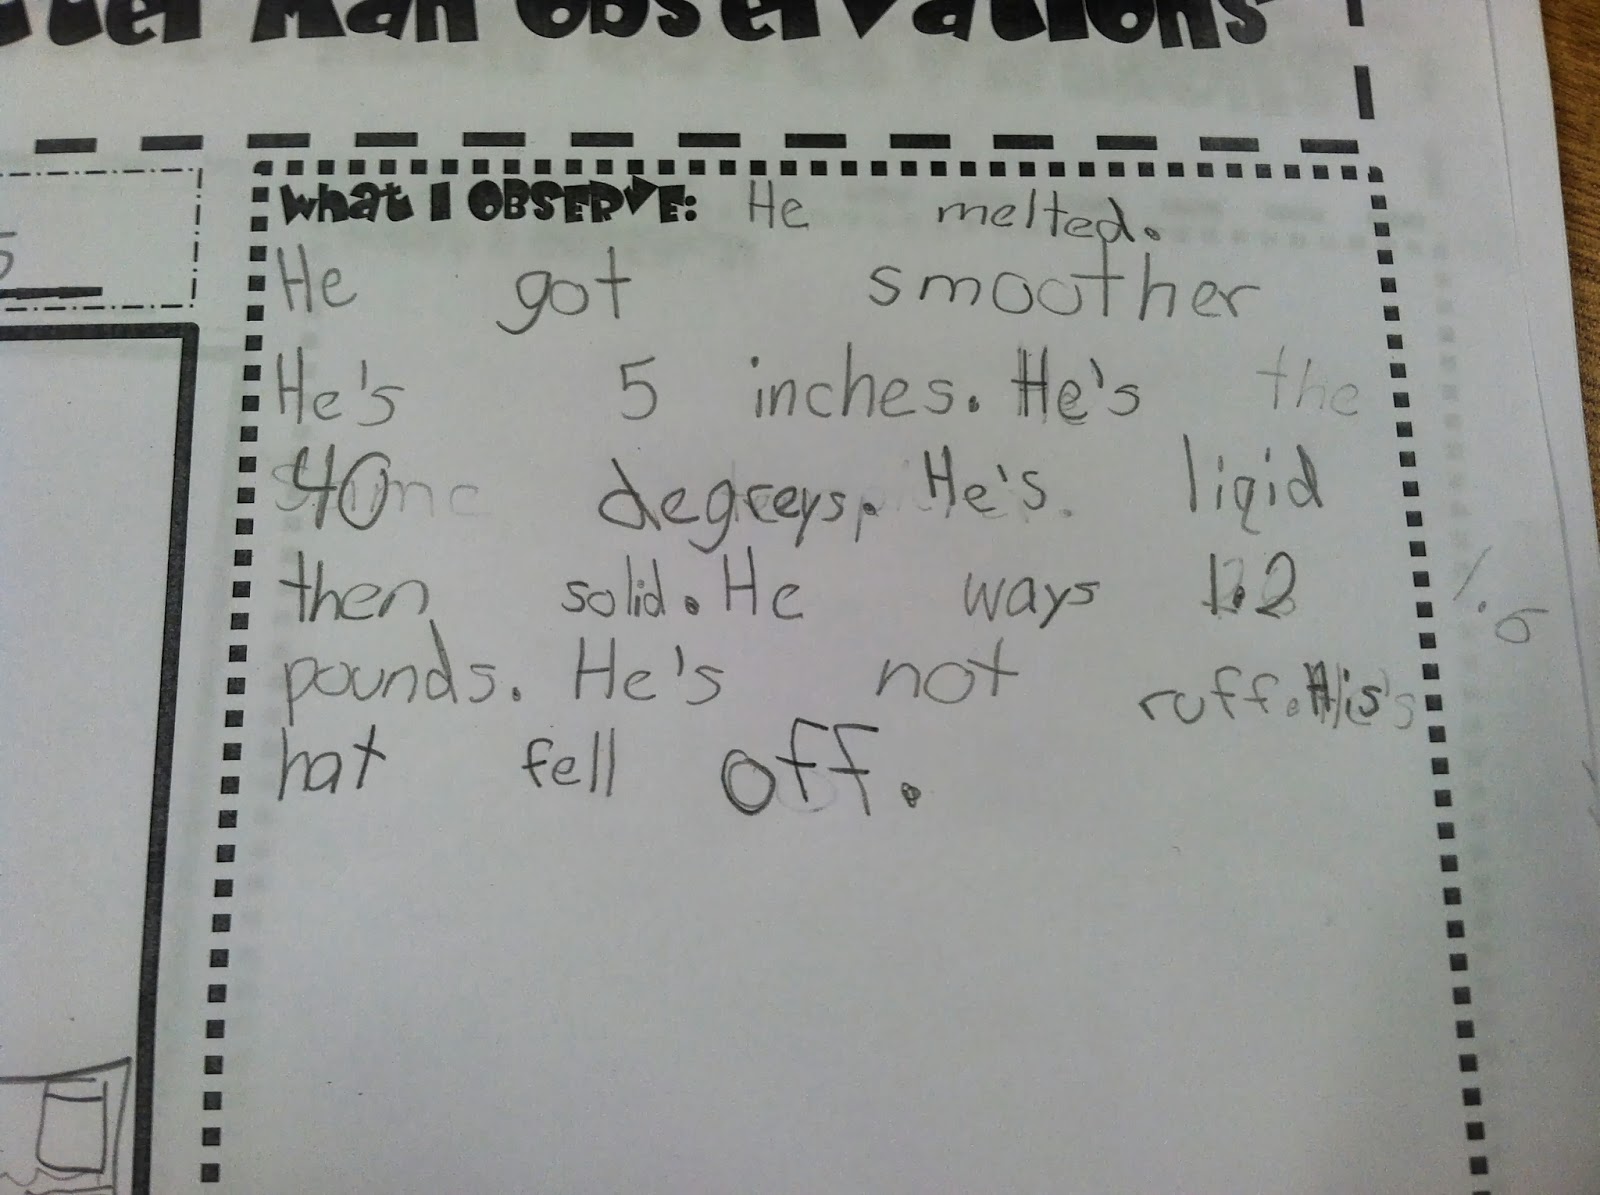 Man Observations
What I OBSERVE: He melted.
He got smoother
He's 5 inches. He's the
40 degreys. He's. liqid
then solid. He ways 1.2
pounds. He's not ruff. His
hat fell off.
5